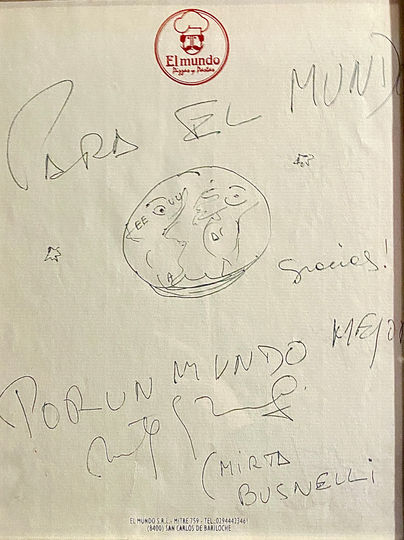 El mundo
Pizzas y Pastas
PARA EL MUNDO
EE UU
Gracias!
POR UN MUNDO MEJOR
(MIRTA
BUSNELLI
EL MUNDO S.R.L.- MITRE 759 - TEL.:02944423461
(8400) SAN CARLOS DE BARILOCHE